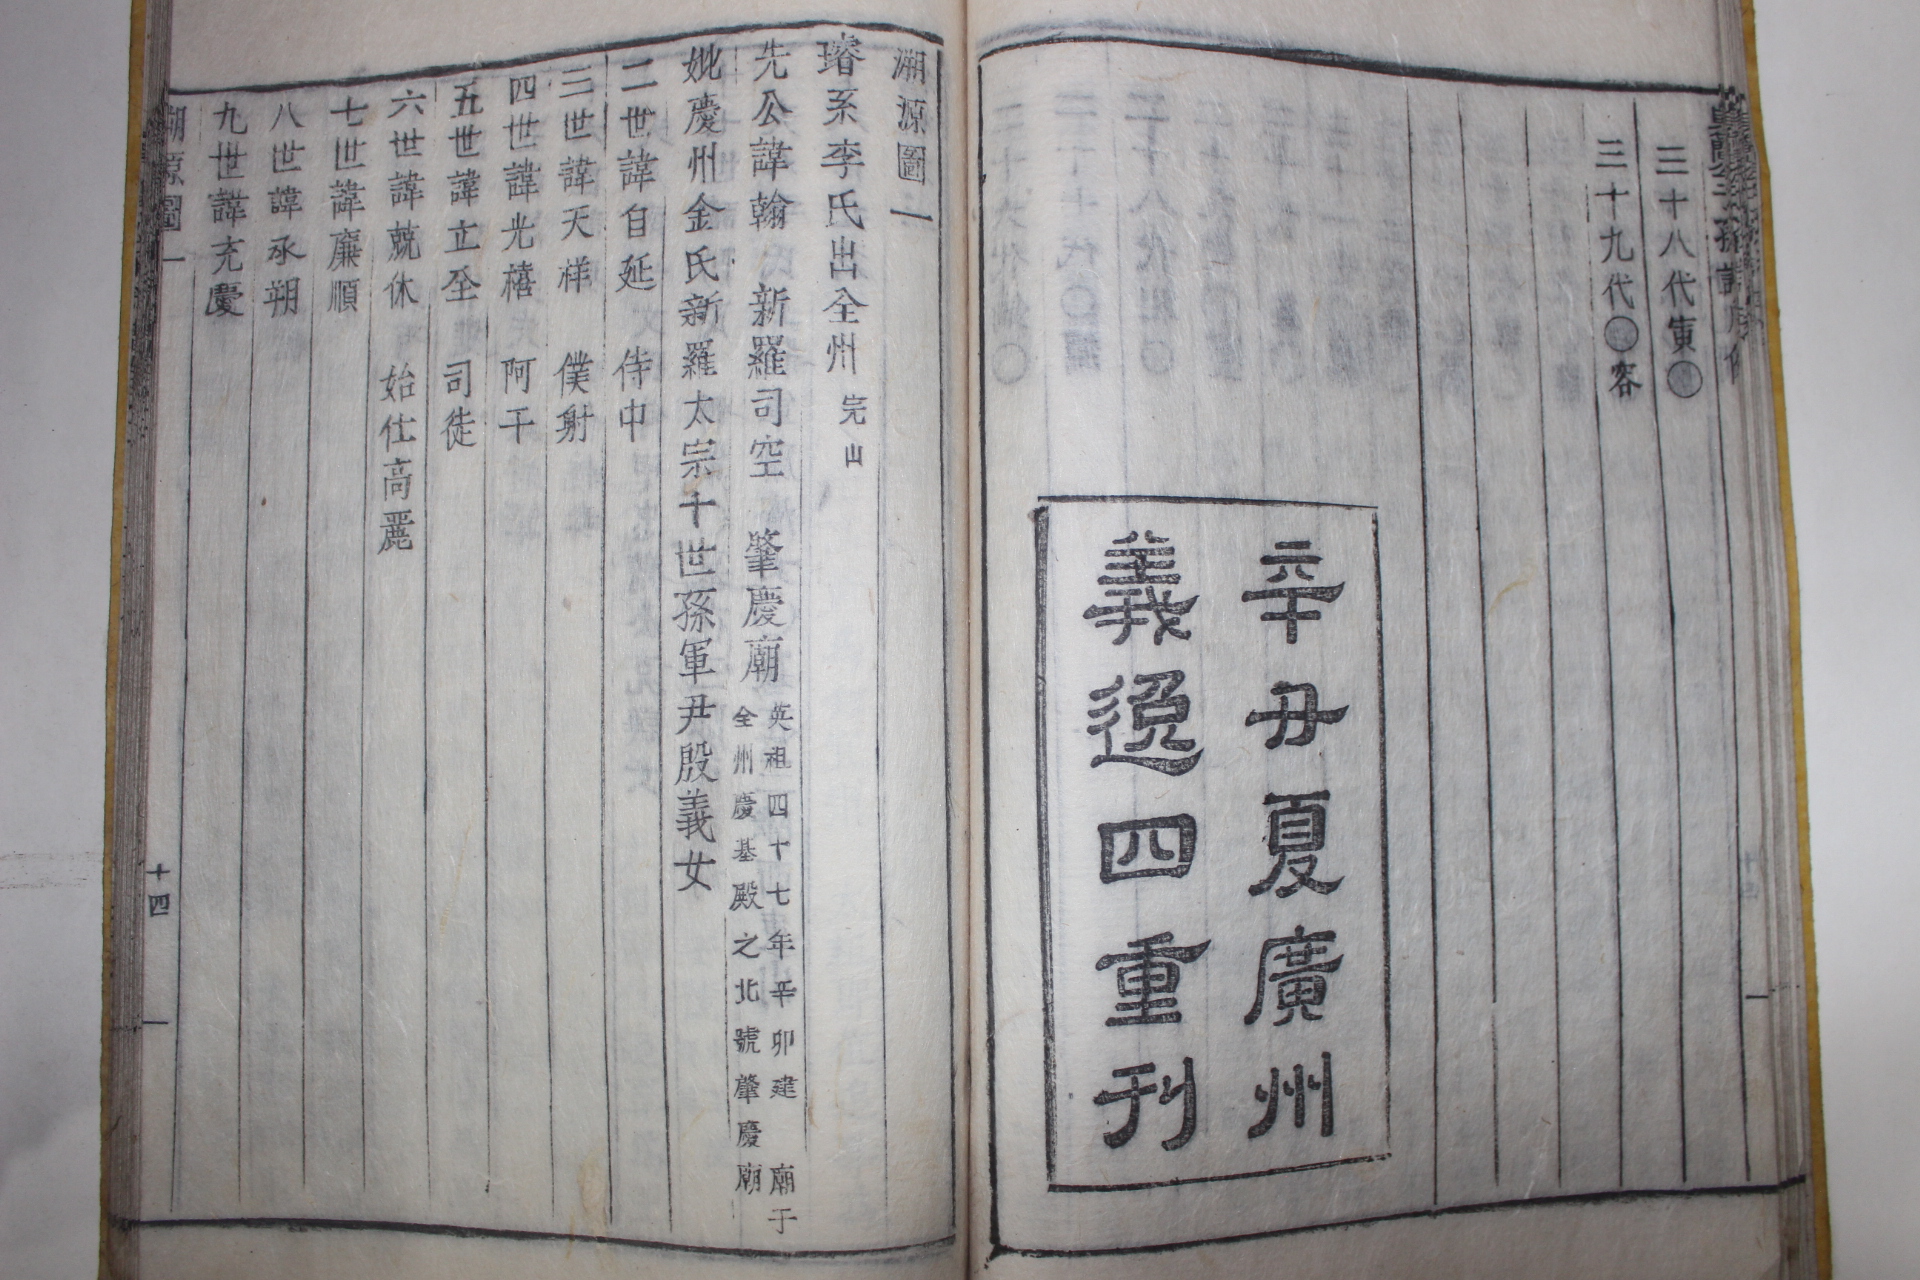 三十八代寅○
三十九代○容
辛丑夏廣州
義逸四重刊
溯源圖一
璿系李氏出全州 完山
先公諱翰 新羅司空 肇慶廟 英祖四十七年辛卯建 廟于
全州慶基殿之北號肇慶廟
妣慶州金氏新羅太宗十世孫軍尹殷義女
二世諱自延 侍中
三世諱天祥 僕射
四世諱光禧 阿干
五世諱立全 司徒
六世諱兢休 始仕高麗
七世諱廉順
八世諱承朔
九世諱充慶
溯源圖 一
十四